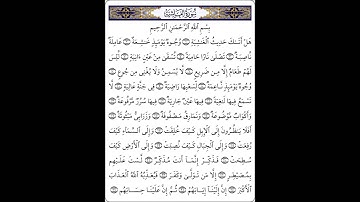 سُورَةُ الغَاشِيَةِ
بِسْمِ ٱللَّهِ ٱلرَّحْمَٰنِ ٱلرَّحِيمِ
هَلْ أَتَىٰكَ حَدِيثُ ٱلْغَٰشِيَةِ وُجُوهٌ يَوْمَئِذٍ خَٰشِعَةٌ عَامِلَةٌ
نَّاصِبَةٌ تَصْلَىٰ نَارًا حَامِيَةً تُسْقَىٰ مِنْ عَيْنٍ ءَانِيَةٍ لَّيْسَ
لَهُمْ طَعَامٌ إِلَّا مِن ضَرِيعٍ لَّا يُسْمِنُ وَلَا يُغْنِى مِن جُوعٍ
وُجُوهٌ يَوْمَئِذٍ نَّاعِمَةٌ لِّسَعْيِهَا رَاضِيَةٌ فِى جَنَّةٍ عَالِيَةٍ لَّا
تَسْمَعُ فِيهَا لَٰغِيَةً فِيهَا عَيْنٌ جَارِيَةٌ فِيهَا سُرُرٌ مَّرْفُوعَةٌ
وَأَكْوَابٌ مَّوْضُوعَةٌ وَنَمَارِقُ مَصْفُوفَةٌ وَزَرَابِىُّ مَبْثُوثَةٌ
أَفَلَا يَنظُرُونَ إِلَى ٱلْإِبِلِ كَيْفَ خُلِقَتْ وَإِلَى ٱلسَّمَآءِ كَيْفَ
رُفِعَتْ وَإِلَى ٱلْجِبَالِ كَيْفَ نُصِبَتْ وَإِلَى ٱلْأَرْضِ كَيْفَ
سُطِحَتْ فَذَكِّرْ إِنَّمَآ أَنتَ مُذَكِّرٌ لَّسْتَ عَلَيْهِم
بِمُصَيْطِرٍ إِلَّا مَن تَوَلَّىٰ وَكَفَرَ فَيُعَذِّبُهُ ٱللَّهُ ٱلْعَذَابَ
ٱلْأَكْبَرَ إِنَّ إِلَيْنَآ إِيَابَهُمْ ثُمَّ إِنَّ عَلَيْنَا حِسَابَهُم